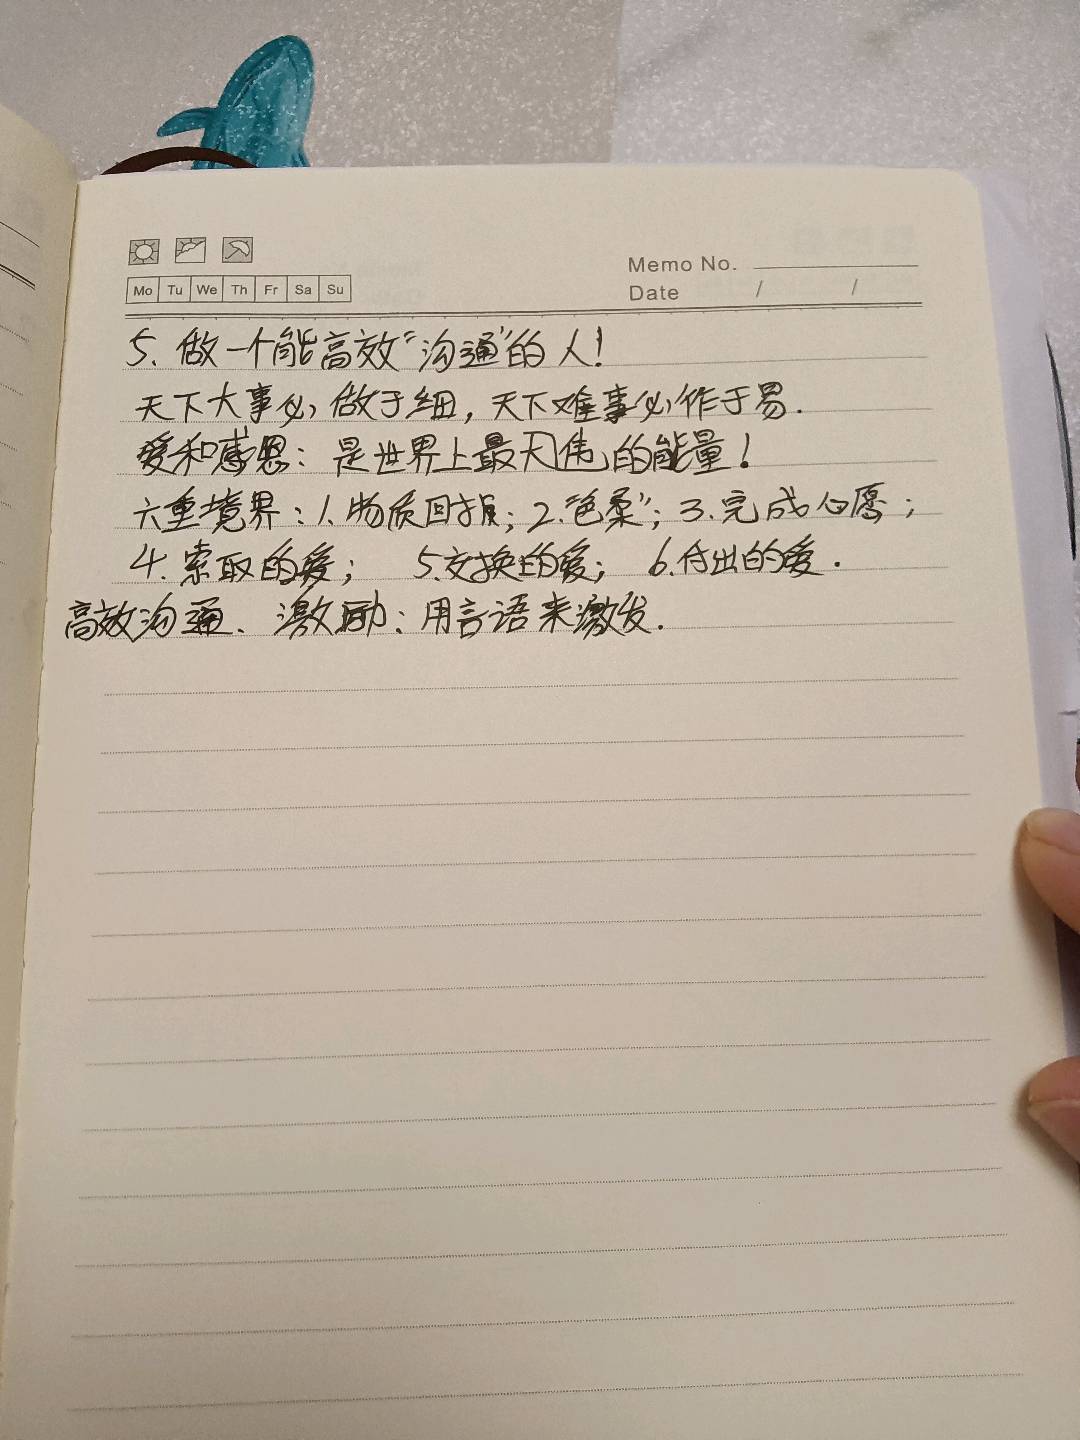 Memo No.
Mo Tu We Th Fr Sa Su
Date / /
5. 做一个能高效“沟通”的人!
天下大事必做于细, 天下难事必作于易.
爱和感恩: 是世界上最伟的能量!
六重境界: 1.物质回报; 2.“色柔”; 3.完成心愿;
4.索取的爱; 5.交换的爱; 6.付出的爱.
高效沟通、激励: 用言语来激发.